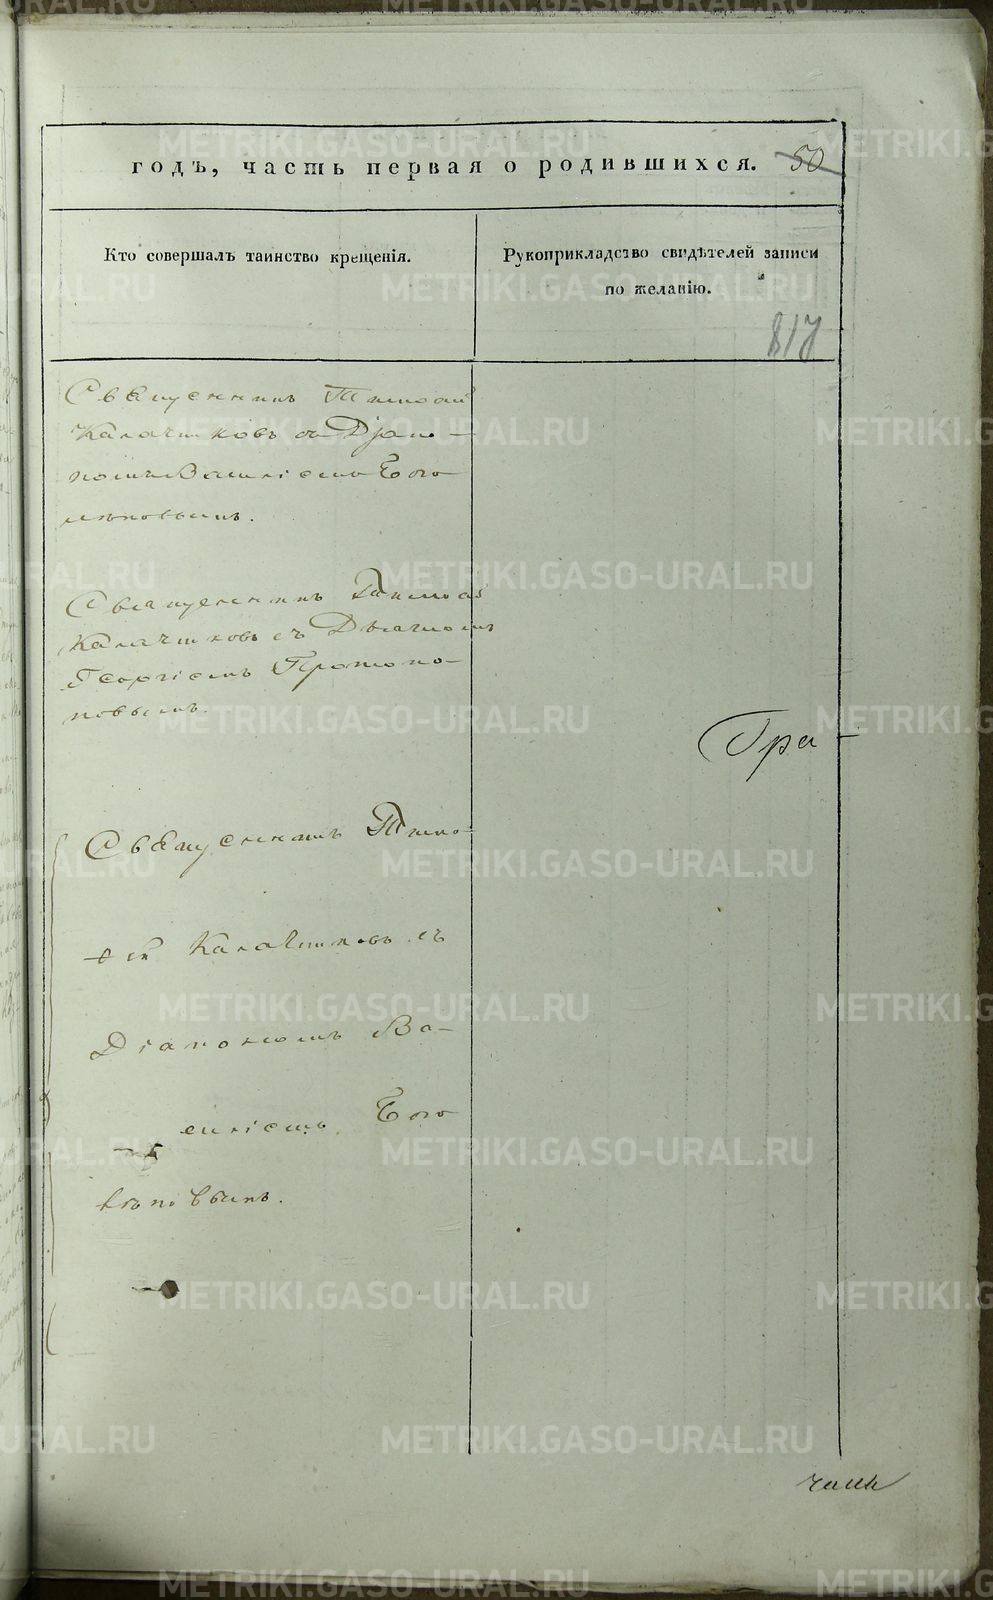 годъ, часть первая о родившихся. 50
Кто совершалъ таинство крещенія.
Рукоприкладство свидѣтелей записи
по желанію.
817
Священникъ Тимофей
Калачниковъ съ Діако-
номъ Василіемъ Бого
лѣповымъ.
Священникъ Тимофей
Калачниковъ съ Дьячкомъ
Георгіемъ Протопо-
повымъ.
Гра-
Священникъ Тимо-
ѳей Калачниковъ съ
Діакономъ Ва-
силіемъ Бого
лѣповымъ.
METRIKI.GASO-URAL.RU